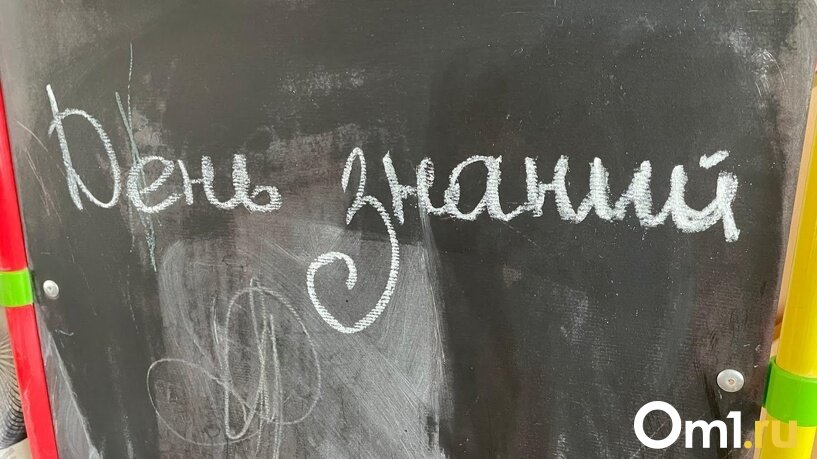 День знаний
Om1.ru